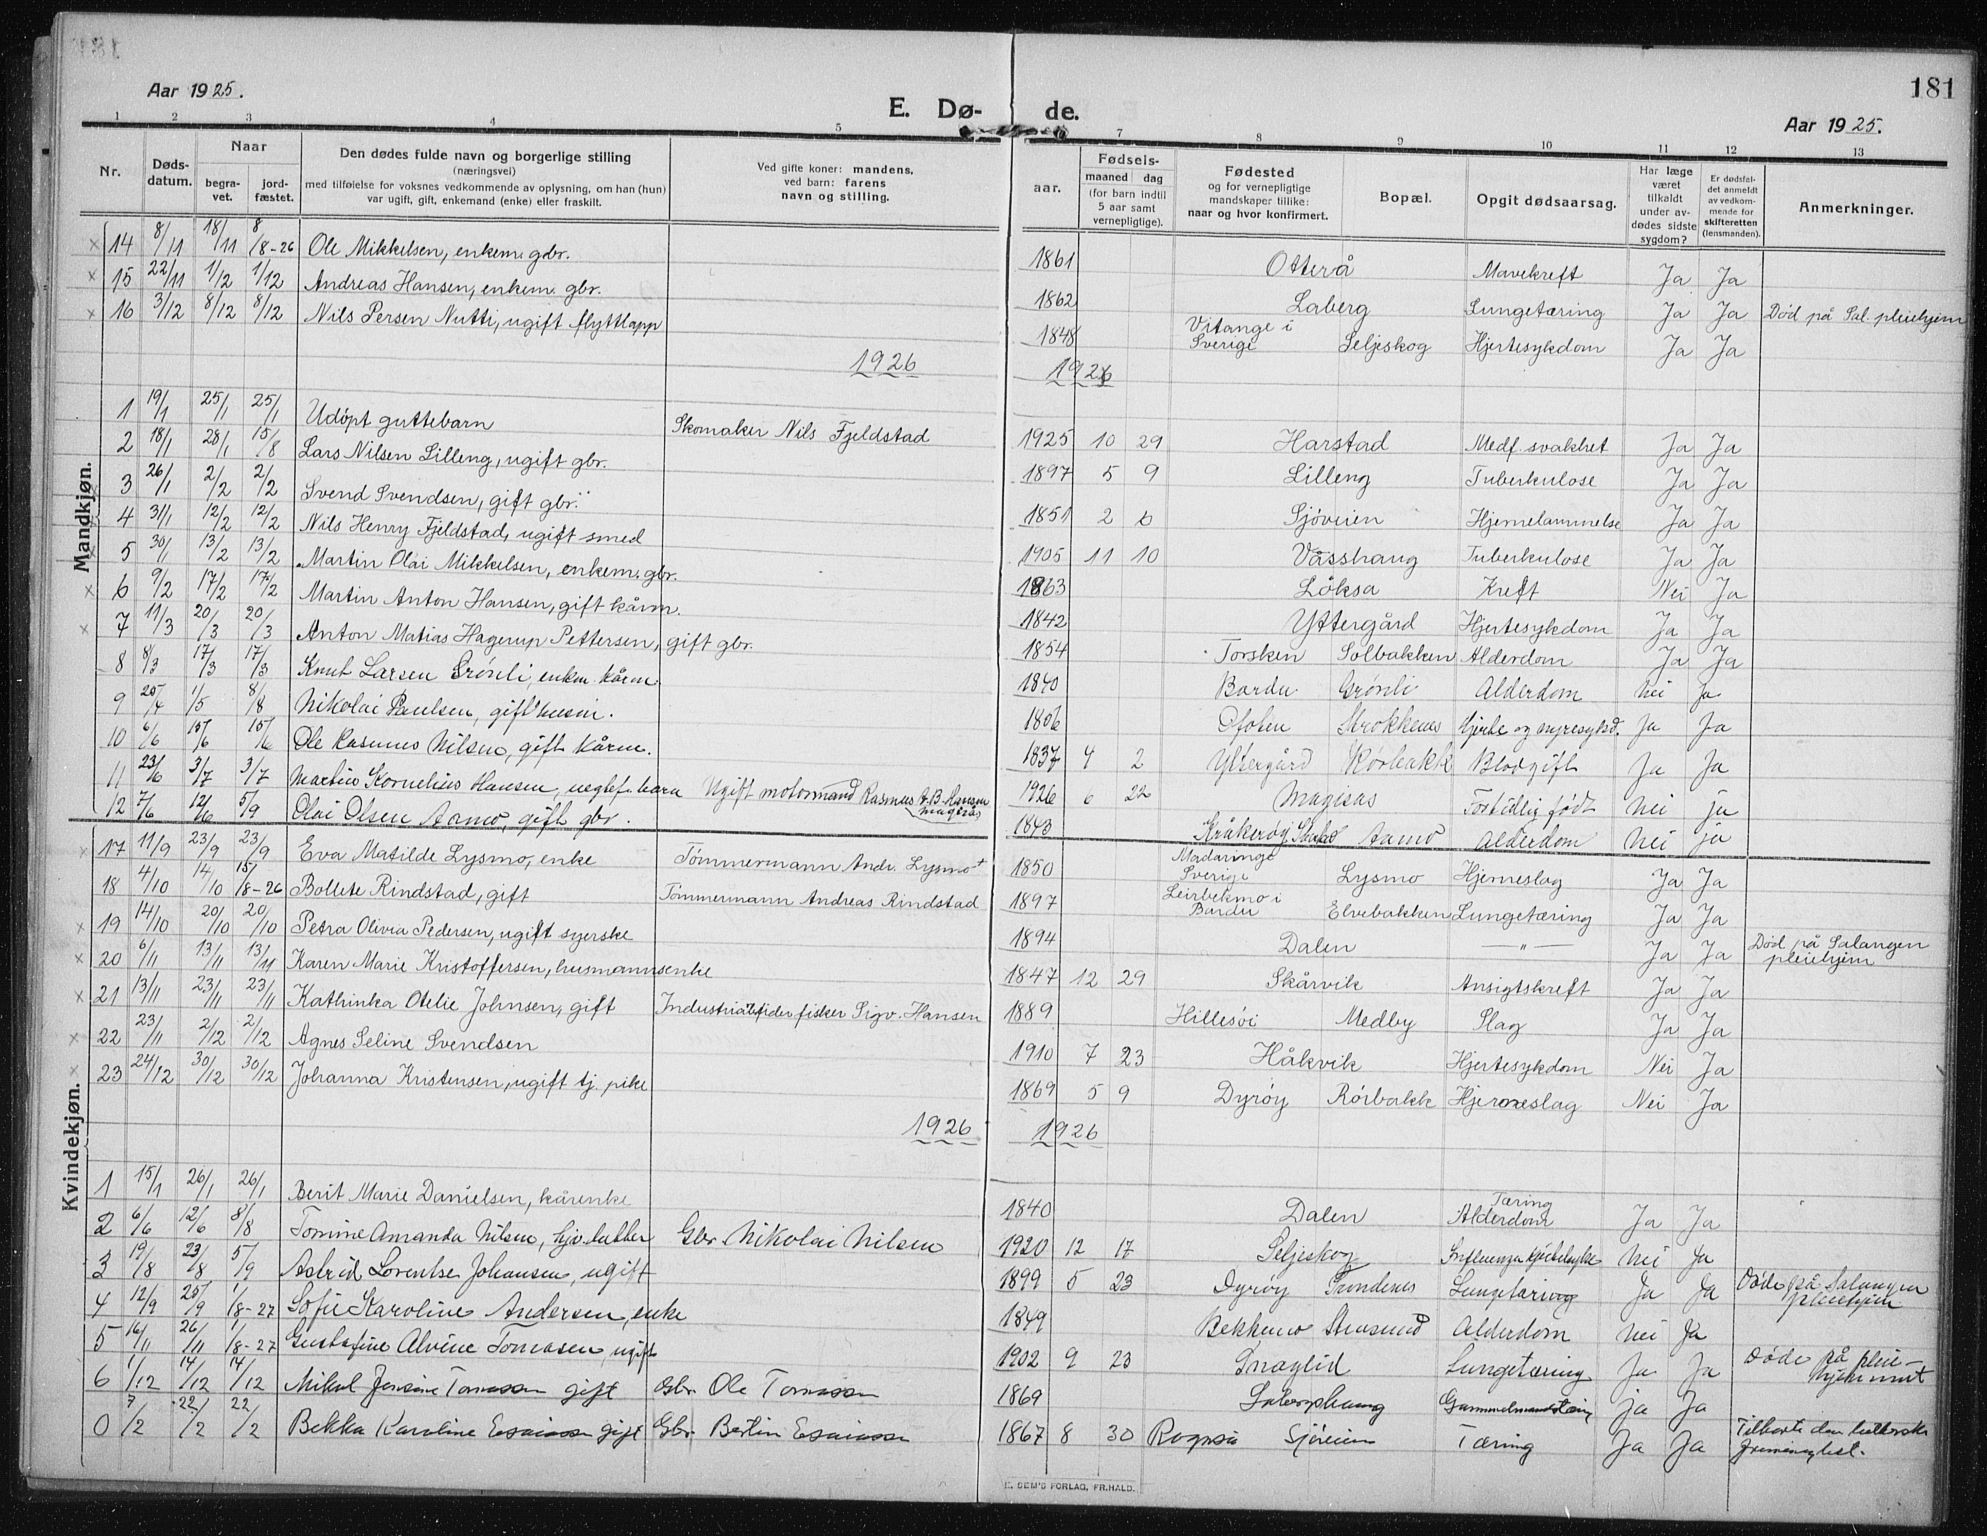 181
Aar 1925.
E. Dø- de.
Aar 1925.
1 2 3 4 5 7 8 9 10 11 12 13
Nr. Døds-datum. Naar begra-vet. jord-fæstet. Den dødes fulde navn og borgerlige stilling (næringsvei) med tilføielse for voksnes vedkommende av oplysning, om han (hun) var ugift, gift, enkemand (enke) eller fraskilt. Ved gifte koner: mandens, ved barn: farens navn og stilling. aar. Fødsels- maaned dag (for barn indtil 5 aar samt vernepligtige). Fødested og for vernepligtige mandskaper tillike: naar og hvor konfirmert. Bopæl. Opgit dødsaarsag. Har læge været tilkaldt under av-dødes sidste sygdom? Er dødsfal-det anmeldt av vedkom-mende for skifteretten (lensmanden). Anmerkninger.
Mandkjøn.
14 8/11 18/11 8/8-26 Ole Mikkelsen, enkem. gbr. 1861 Otterå Mavekreft Ja Ja
15 22/11 1/12 1/12 Andreas Hansen, enkem. gbr. 1862 Laberg Lungetæring Ja Ja Død på Sal. pleiehjem
16 3/12 8/12 8/12 Nils Persen Nutti, ugift flyttlapp 1848 Vitange i Sverige Seljeskog Hjertesykdom Ja Ja
1926 1926
1 19/1 25/1 25/1 Udøpt guttebarn Skomaker Nils Fjeldstad 1925 10 29 Harstad Medf. svakhet Ja Ja
2 18/1 28/1 15/8 Lars Nilsen Lilleng, ugift gbr. 1897 5 9 Lilleng Tuberkulose Ja Ja
3 26/1 2/2 2/2 Svend Svendsen, gift gbr. 1851 2 6 Sjøveien Hjernelammelse Ja Ja
4 31/1 12/2 12/2 Nils Henry Fjeldstad, ugift smed 1905 11 10 Vasshaug Tuberkulose Ja Ja
5 30/1 13/2 13/2 Martin Olai Mikkelsen, enkem. gbr. 1863 Løksa Kreft Nei Ja
6 9/2 17/2 17/2 Martin Anton Hansen, gift kårm. 1842 Yttergård Hjertesykdom Ja Ja
7 11/3 20/3 20/3 Anton Matias Hagerup Pettersen, gift gbr. 1854 Torsken Solbakken Alderdom Ja Ja
8 8/3 17/3 17/3 Knut Larsen Grønli, enkem. kårm. 1840 Bardu Grønli Alderdom Nei Ja
9 20/4 1/5 8/8 Nikolai Paulsen, gift husm. 1866 Ofoten Strokkenes Hjerte og nyresykd. Ja Ja
10 6/6 15/6 15/6 Ole Rasmus Nilsen, gift kårm. 1837 4 2 Yttergård Rørbakk Blodgift Ja Ja
11 23/6 3/7 3/7 Martin Kornelius Hansen, uegtef. barn Ugift motormand Rasmus A. B. Hansen 1926 6 22 Magisas Fortidlig født Nei ja
12 7/6 12/6 5/9 Olai Olsen Aamo, gift gbr. 1843 Kråkerøy Aamo Alderdom Nei ja
Kvindekjøn.
17 11/9 23/9 23/9 Eva Matilde Lysmo, enke Tømmermann Andr. Lysmo† 1850 Madaringe Sverige Lysmo Hjerneslag Ja Ja
18 4/10 14/10 15/8-26 Bollete Rindstad, gift Tømmermann Andreas Rindstad 1897 Leirbekmo i Bardu Elvebakken Lungetæring Ja Ja
19 14/10 20/10 20/10 Petra Olivia Pedersen, ugift syerske 1894 Dalen —"— Ja Ja Død på Salangen pleiehjem
20 6/11 13/11 13/11 Karen Marie Kristoffersen, husmannsenke 1847 12 29 Skårvik Ansigtskreft Ja Ja
21 13/11 23/11 23/11 Kathinka Otelie Johnsen, gift Industriarbeider fisker Sigv. Hansen 1889 Hillesøi Medby Slag Ja Ja
22 23/11 2/12 2/12 Agnes Seline Svendsen 1910 7 23 Håkvik Hjertesykdom Nei Ja
23 24/12 30/12 30/12 Johanna Kristensen, ugift tj. pike 1869 5 9 Dyrøy Rørbakk Hjerneslag Nei Ja
1926 1926
1 15/1 26/1 26/1 Berit Marie Danielsen, kårenke 1840 Dalen Tæring Alderdom Ja Ja
2 6/6 12/6 8/8 Tomine Amanda Nilsen, Gbr. Nikolai Nilsen 1920 12 17 Seljeskog Influenza hjertelyke Nei Ja
3 19/8 23/8 5/9 Astrid Lorentse Johansen, ugift 1899 5 23 Dyrøy Trondenes Lungetæring Ja Ja Døde på Salangen pleiehjem
4 12/9 20/9 1/8-27 Sofie Karoline Andersen, enke 1849 Bekkemo Stensund Alderdom Nei Ja
5 16/11 26/11 1/8-27 Gustafine Alvine Tomasen, ugift 1902 9 23 Snaglid Lungetæring Ja Ja Døde på pleie-hjemmet
6 1/12 14/12 14/12 Mikal Jensine Tomassen gift Gbr. Ole Tomassen 1869 ja Ja
0 7/2 22/2 22/2 Bekka Karoline Esaiassen gift Gbr. Bertin Esaiassen 1867 8 30 Sjøveien Tæring Ja Ja Tilhørte den lutherske
E. SEM'S FORLAG, FR.HALD.